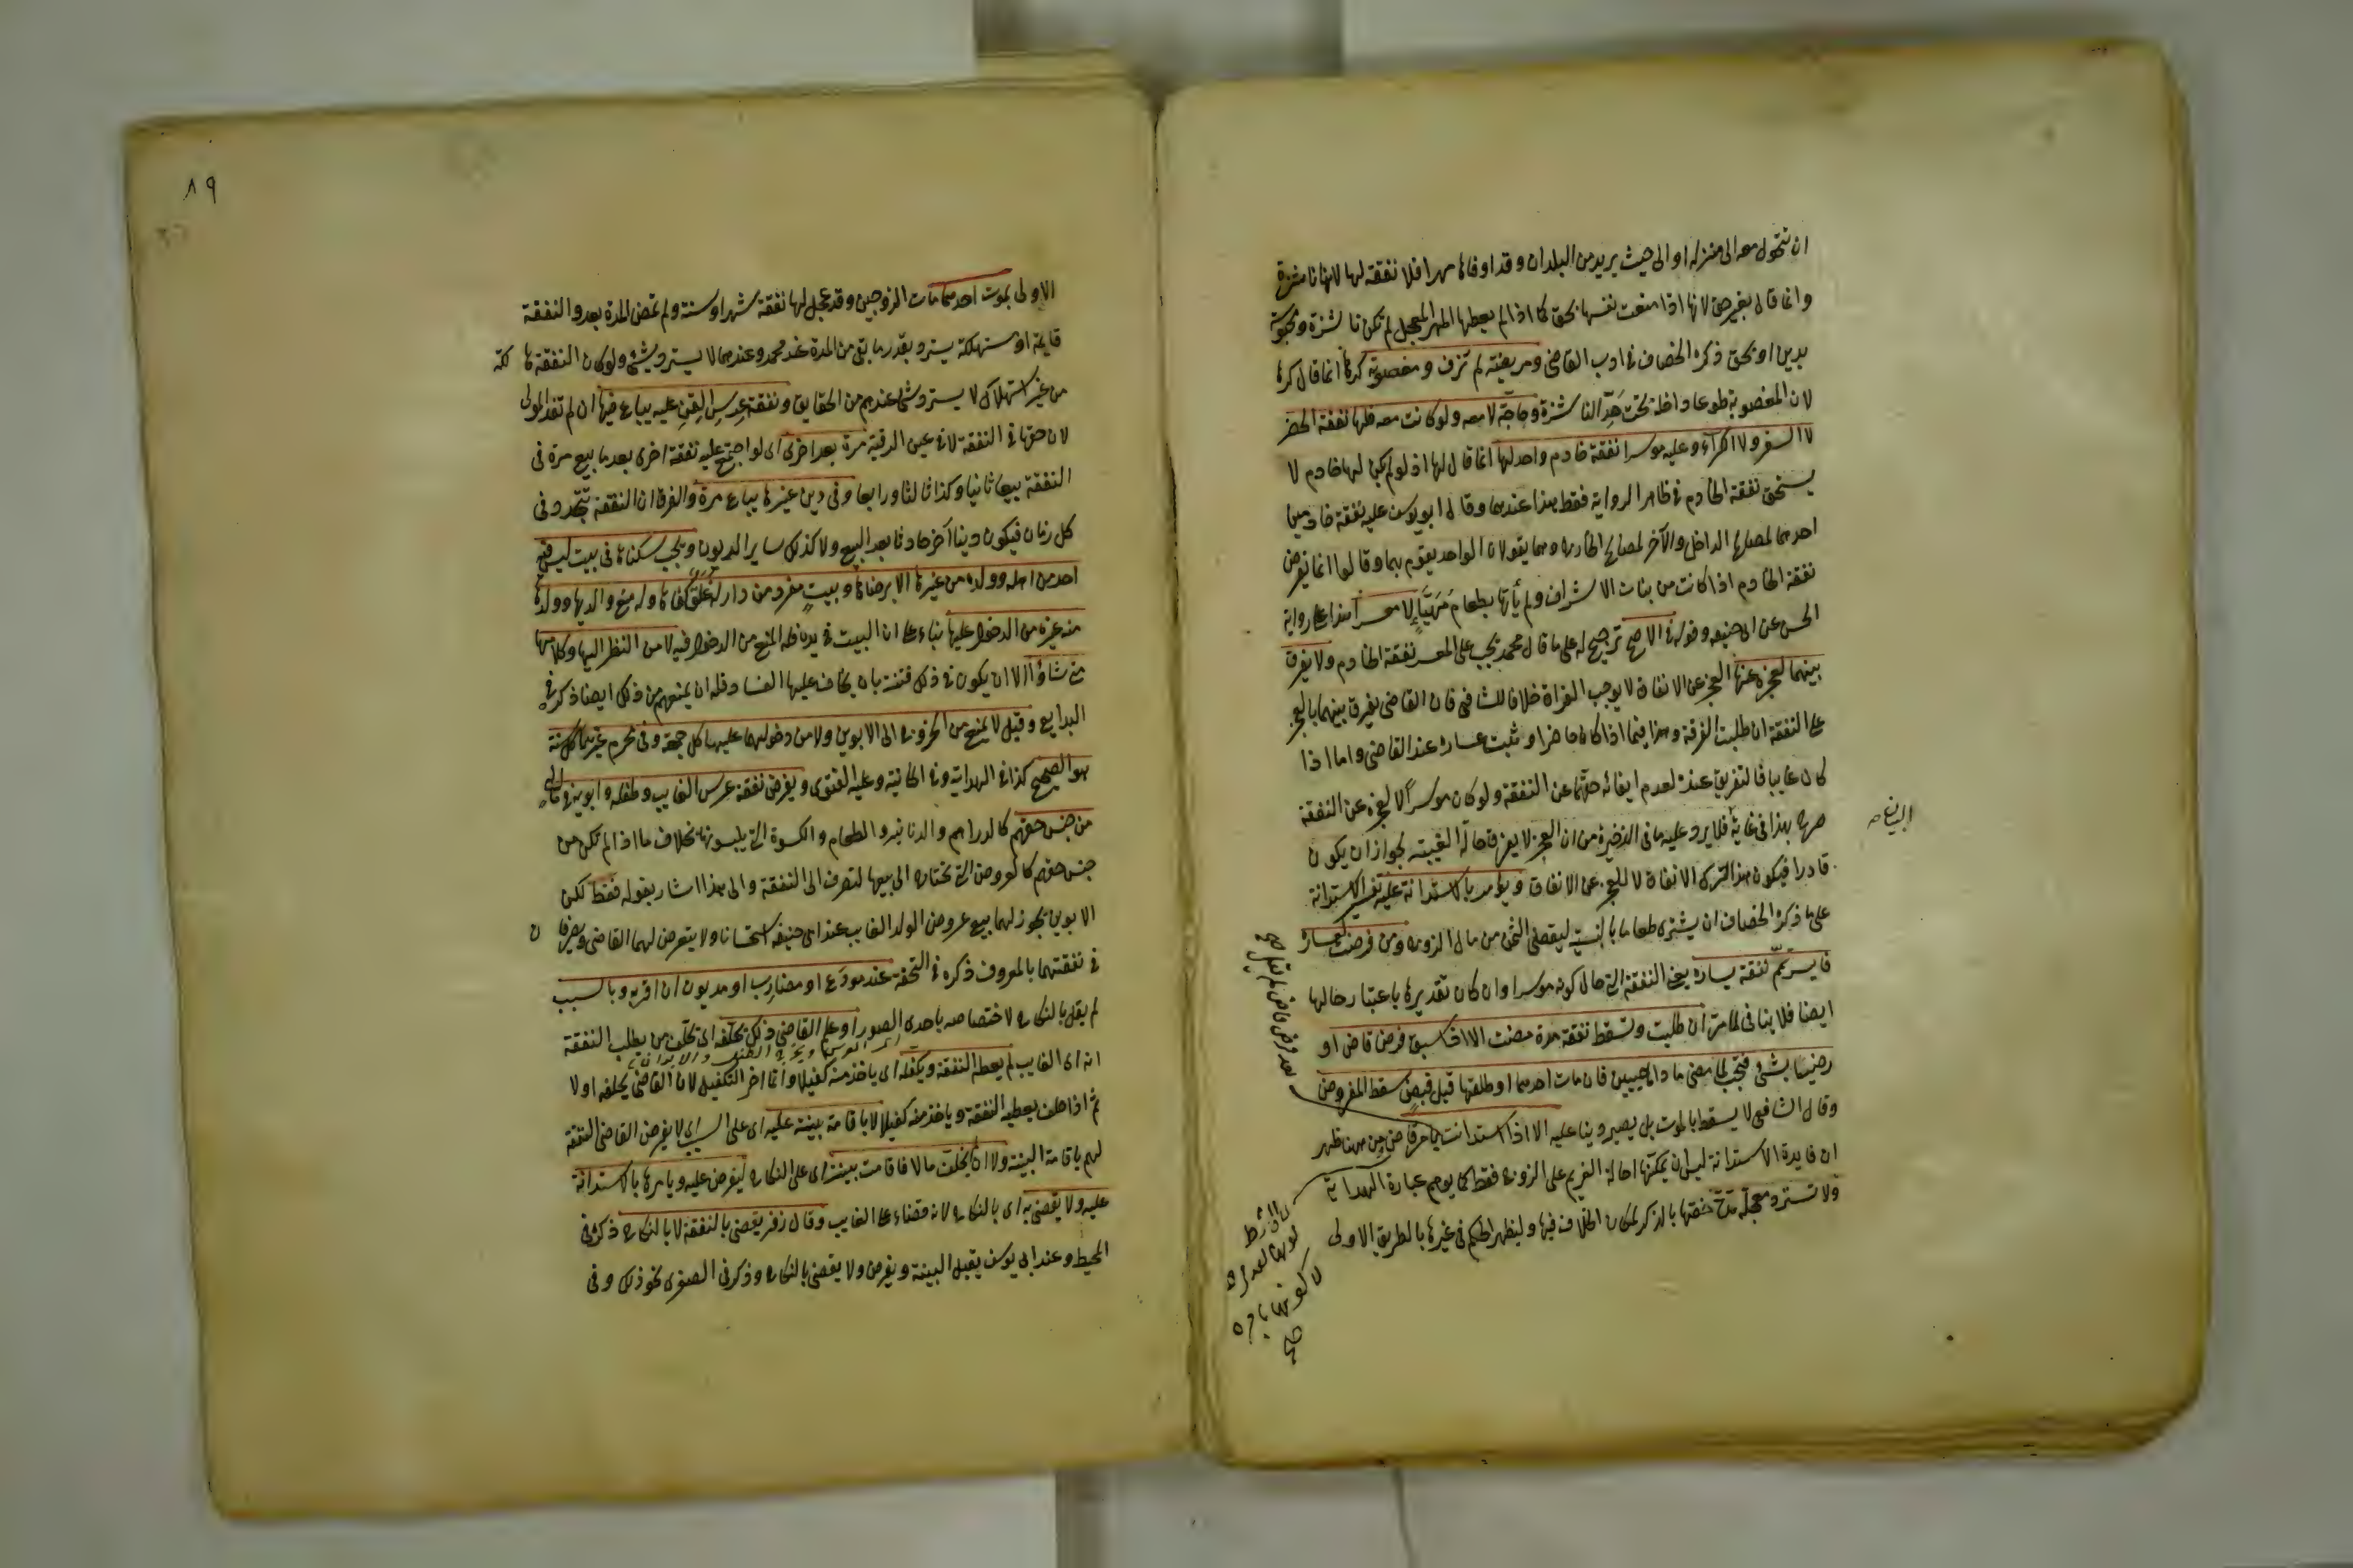 ان تتحول معه الى منزله او الى حيث يريد من البلدان وقد اوفاها مهرها فلا نفقة لها لانها ناشزة
وانما قال بغير حق لانها اذا منعت نفسها بحق كما اذا لم يعطها المهر المعجل لم تكن ناشزة ومحبوسة
بدين او بحق ذكره الخصاف في ادب القاضي ومريضة لم تزف ومغصوبة كرها انما قال كرها
لان المغصوبة طوعا داخلة تحت الناشزة وحاجة لا معه ولو كانت معه فلها نفقة الحضر
لا السفر ولا الكراء وعليه موسرا نفقة خادم واحد لها انما قال لها اذ لو لم يكن لها خادم لا
يستحق نفقة الخادم في ظاهر الرواية فقط هذا عندهما وقال ابو يوسف عليه نفقة خادمين
احدهما لمصالح الداخل والآخر لمصالح الخارج وهما يقولان الواحد يقوم بهما وقالوا انما يفرض
نفقة الخادم اذا كانت من بنات الاشراف ولم يأتها بطعام مهيأ لا معسرا هذا على رواية
الحسن عن ابى حنيفه وقوله فى الاصح ترجيح له على ما قال محمد يجب على المعسر نفقة الخادم ولا يفرق
بينهما لعجزه عنها العجز عن الانفاق لا يوجب الفراق خلافا للشافعى فان القاضى يفرق بينهما بالعجز
على النفقة ان طلبت الفرقة وهذا فيما اذا كان حاضرا وثبت عساره عند القاضى واما اذا
كان غايبا فالتفريق عنده لعدم ايفائه حقها عن النفقة ولو كان موسرا لا لعجزه عن النفقة
صرح بهذا فى غاية فلا يرد عليه ما فى الذخيرة من ان العجز لا يعرف حالة الغيبة لجواز ان يكون
البيان صح
قادرا فيكون هذا ترك الانفاق لا للعجز عن الانفاق ويؤمر بالاستدانة عليه تفسير الاستدانة
على ما ذكره الخصاف ان يشترى طعاما بالنسية ليقضى الثمن من مال الزوج ومن فرضت لعساره
فايسر تمم نفقة يساره يعنى النفقة التى حال كونه موسرا وان كان تقديرها باعتبار حالها
ايضا فلا ينافى لما مر ان طلبت وتسقط نفقة مدة مضت الا اذا سبق فرض قاض او
رضيا بشئ فتجب لما مضى ما داما حيين فان مات احدهما او طلقها قبل قبض سقط المفروض
بعد فرض قاض
وقال الشافعى لا يسقط بالموت بل يصير دينا عليه الا اذا استدانت بامر قاض من ههنا ظهر
ان فايدة الاستدانة ليس ان يمكنها احالة الغريم على الزوج فقط كما يوهم عبارة الهداية
ولا تسترد معجلة مدة خصها بالذكر لمكان الخلاف فيها وليظهر الحكم فى غيرها بالطريق الاولى
٨٩
الاولى بموت احدهما مات الزوجين وقد عجل لها نفقة شهر او سنة ولم تمض المدة بعد والنفقة
قايمة او مستهلكة يسترد بقدر ما بقى من المدة عند محمد وعندهما لا يسترد بشئ ولو كان النفقة هالكة
من غير استهلاك لا يسترد شئ عندهم من الحقايق ونفقة عرس القن عليه يباع فيها ان لم تفد المولى
لان حقها فى النفقة لا فى عين الرقبة مرة بعد اخرى اى لو اجتمع عليه نفقة اخرى بعد ما بيع مرة فى
النفقة بيع ثانيا وكذا ثالثا ورابعا وفى دين غيرها يباع مرة والفرق ان النفقة تتجدد فى
كل زمان فيكون دينا آخر حادثا بعد البيع ولا كذلك ساير الديون ويجب سكناها فى بيت ليس فيه
احد من اهله وولده من غيرها الا برضاها وبيت مفرد من دار له غلق كفاها وله منع والديها وولدها
من غيره من الدخول عليها بناء على ان البيت فى يده فله المنع من الدخول فيه لا من النظر اليها وكلامها
متى شاؤا الا ان يكون فى ذلك فتنة بان يخاف عليها الفساد فله ان يمنعهم من ذلك ايضا ذكره فى
البدايع وقيل لا يمنع من الخروج الى الابوين ولا من دخولهما عليها كل جمعة وفى محرم غيرهما كل سنة
هو الصحيح كذا فى الهداية وفى الخانية وعليه الفتوى ويفرض نفقة عرس الغايب وطفله وابويه فى مال له
من جنس حقهم كالدراهم والدنانير والطعام والكسوة التى يلبسونها بخلاف ما اذا لم تكن من
جنس حقهم كالعروض التى تحتاج الى بيعها لتصرف الى النفقة والى هذا اشار بقوله فقط لكن
الابوين يجوز لهما بيع عروض الولد الغايب عند ابى حنيفه استحسانا ولا يتعرض لهما القاضى ويصرفان
فى نفقتهما بالمعروف ذكره فى التحفة عند مودع او مضارب او مديون ان اقر به وبالسبب
لم يقل بالنكاح لاختصاصه باحدى الصور او علم القاضى ذلك يحلفه اى تحلف من يطلب النفقة
انه اى الغايب لم يعطه النفقة ويكفله اى ياخذ منه كفيلا وانما اخر التكفيل لان القاضى يحلفه اولا
ثم اذا حلف يعطيه النفقة وياخذ منه كفيلا لا باقامة بينة عليه اى على السبب اى لا يفرض القاضى النفقة
لهم باقامة البينة ولا ان لم يخلف مالا فاقامت بينة اى على النكاح ليفرض عليه ويامرها بالاستدانة
عليه ولا يقضى به اى بالنكاح لانه قضاء على الغايب وقال زفر يقضى بالنفقة لا بالنكاح ذكره فى
المحيط وعند ابى يوسف يقبل البينة ويفرض ولا يقضى بالنكاح وذكر فى الصغرى نحو ذلك وفى